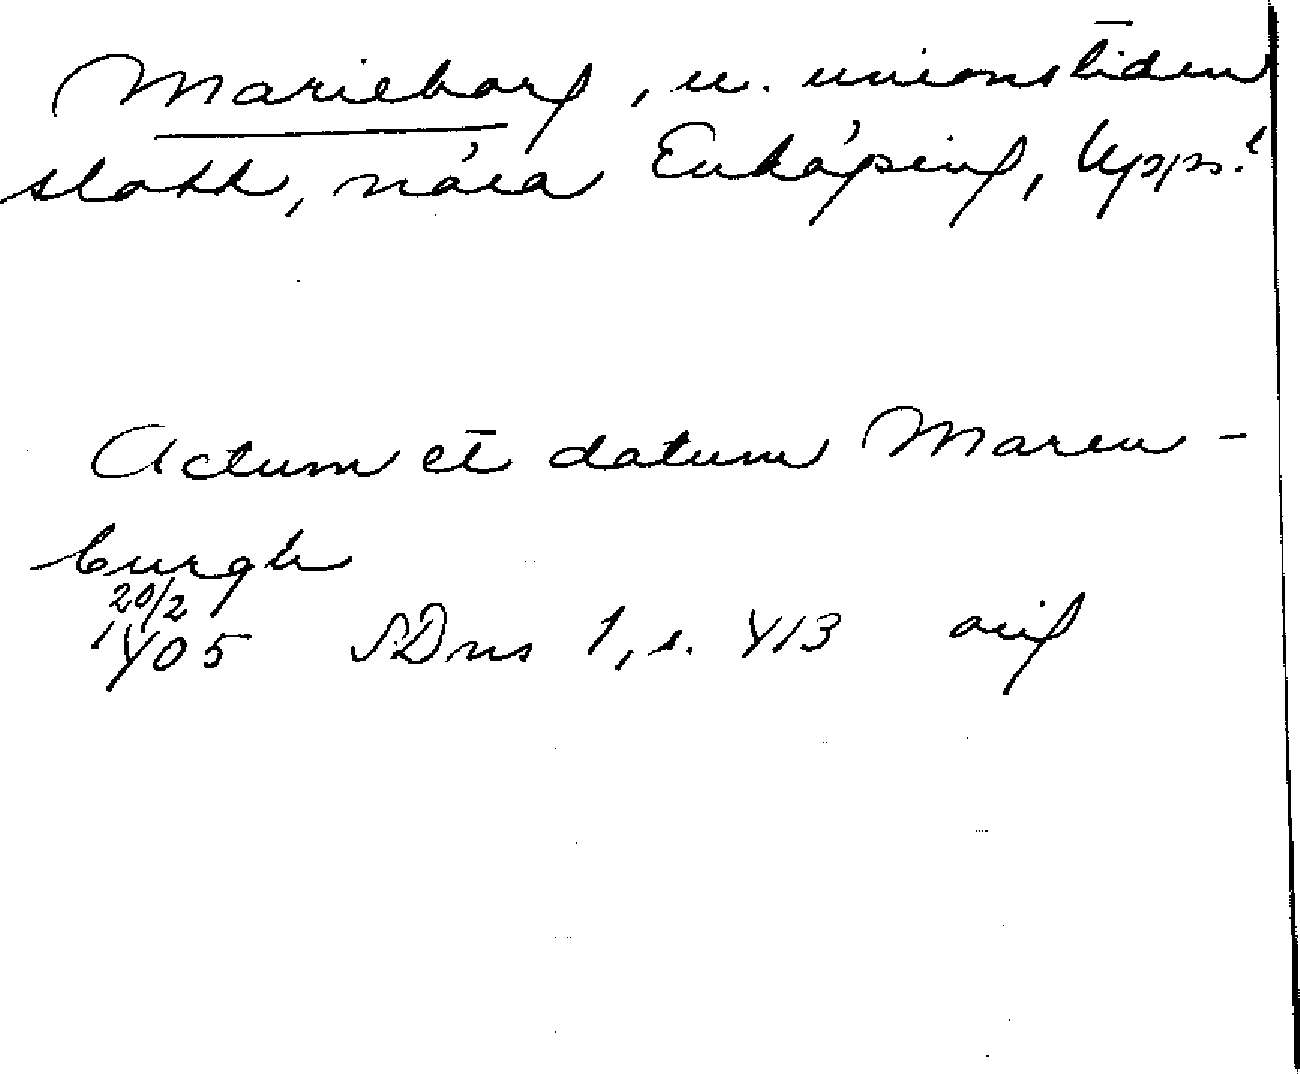 Marieborg, u. unionstiden
slott, nära Enköping, Uppl.
Actum et datum Maren-
burgh
20/2
1405 SDns 1, s. 413 orig